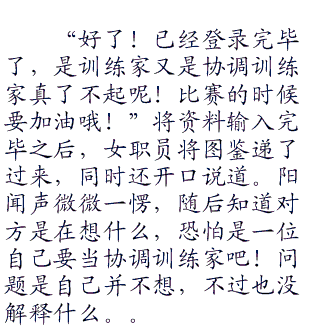 “好了！已经登录完毕
了，是训练家又是协调训练
家真了不起呢！比赛的时候
要加油哦！”将资料输入完
毕之后，女职员将图鉴递了
过来，同时还开口说道。阳
闻声微微一愣，随后知道对
方是在想什么，恐怕是一位
自己要当协调训练家吧！问
题是自己并不想，不过也没
解释什么。。